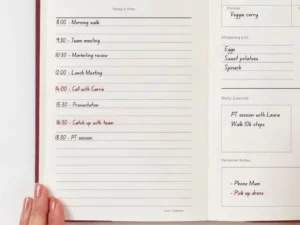 Today's Plan
8:00 - Morning walk
9:30 - Team meeting
10:30 - Marketing review
12:00 - Lunch Meeting
14:00 - Call with Carrie
15:30 - Presentation
16:30 - Catch up with team
18:30 - PT session
Dinner
Veggie curry
Shopping List
Eggs
Sweet potatoes
Spinach
Daily Exercise
PT session with Laura
Walk 10k steps
Personal Notes
- Phone Mum
- Pick up dress